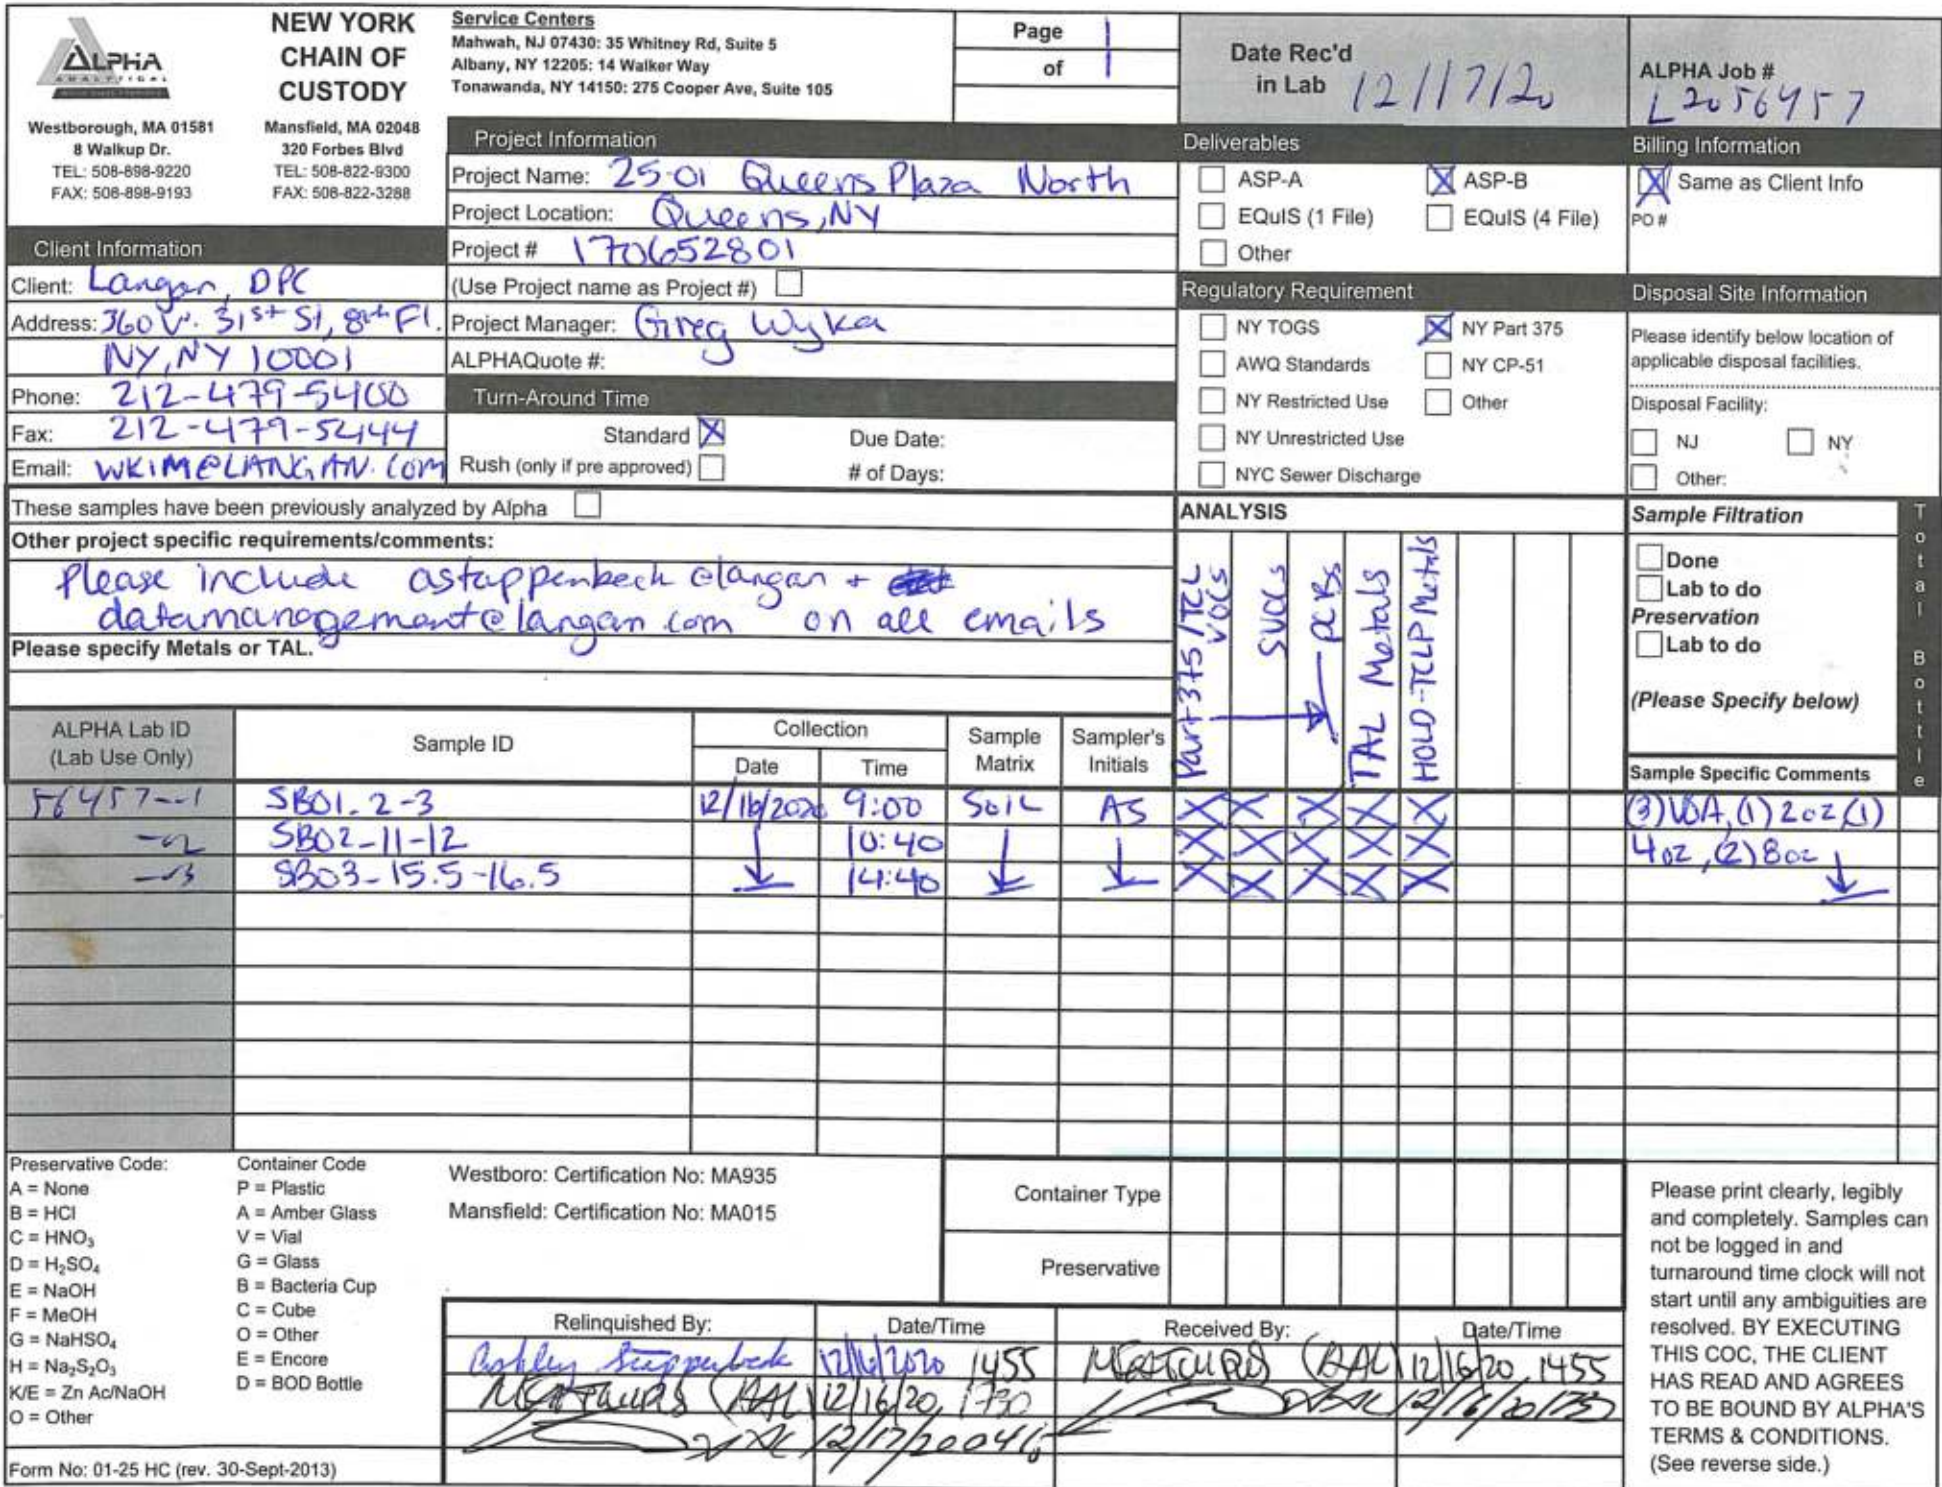 ALPHA
ANALYTICAL
Westborough, MA 01581
8 Walkup Dr.
TEL: 508-898-9220
FAX: 508-898-9193
NEW YORK
CHAIN OF
CUSTODY
Mansfield, MA 02048
320 Forbes Blvd
TEL: 508-822-9300
FAX: 508-822-3288
Service Centers
Mahwah, NJ 07430: 35 Whitney Rd, Suite 5
Albany, NY 12205: 14 Walker Way
Tonawanda, NY 14150: 275 Cooper Ave, Suite 105
Page 1
of 1
Date Rec'd
in Lab 12/17/20
ALPHA Job #
L2056457
Client Information
Client: Langan, DPC
Address: 360 W. 31st St, 8th Fl.
NY, NY 10001
Phone: 212-479-5400
Fax: 212-479-5444
Email: WKIM@LANGAN.COM
Project Information
Project Name: 25-01 Queens Plaza North
Project Location: Queens, NY
Project # 170652801
(Use Project name as Project #)
Project Manager: Greg Wyka
ALPHAQuote #:
Turn-Around Time
Standard X Due Date:
Rush (only if pre approved) # of Days:
Deliverables
ASP-A X ASP-B
EQuIS (1 File) EQuIS (4 File)
Other
Regulatory Requirement
NY TOGS X NY Part 375
AWQ Standards NY CP-51
NY Restricted Use Other
NY Unrestricted Use
NYC Sewer Discharge
Billing Information
X Same as Client Info
PO #
Disposal Site Information
Please identify below location of
applicable disposal facilities.
Disposal Facility:
NJ NY
Other:
These samples have been previously analyzed by Alpha
Other project specific requirements/comments:
Please include astappenbeck@langan +
datamanagement@langan.com on all emails
Please specify Metals or TAL.
ANALYSIS
Part 375/TCL VOCs
SVOCs
PCBs
TAL Metals
HOLD-TCLP Metals
Sample Filtration
Done
Lab to do
Preservation
Lab to do
(Please Specify below)
Total Bottle
ALPHA Lab ID
(Lab Use Only)
Sample ID
Collection
Date Time
Sample
Matrix
Sampler's
Initials
Sample Specific Comments
56457--1 SB01.2-3 12/16/2020 9:00 SOIL AS X X X X X (3) VOA, (1) 2oz, (1)
-02 SB02-11-12 10:40 X X X X X 4oz, (2) 8oz
-03 SB03-15.5-16.5 14:40 X X X X X
Preservative Code:
A = None
B = HCl
C = HNO₃
D = H₂SO₄
E = NaOH
F = MeOH
G = NaHSO₄
H = Na₂S₂O₃
K/E = Zn Ac/NaOH
O = Other
Container Code
P = Plastic
A = Amber Glass
V = Vial
G = Glass
B = Bacteria Cup
C = Cube
O = Other
E = Encore
D = BOD Bottle
Westboro: Certification No: MA935
Mansfield: Certification No: MA015
Container Type
Preservative
Relinquished By: Date/Time Received By: Date/Time
Ashley Stappenbeck 12/16/2020 1455 (AAL) 12/16/20, 1455
(AAL) 12/16/20, 1730 12/16/20
12/17/20
Please print clearly, legibly
and completely. Samples can
not be logged in and
turnaround time clock will not
start until any ambiguities are
resolved. BY EXECUTING
THIS COC, THE CLIENT
HAS READ AND AGREES
TO BE BOUND BY ALPHA'S
TERMS & CONDITIONS.
(See reverse side.)
Form No: 01-25 HC (rev. 30-Sept-2013)